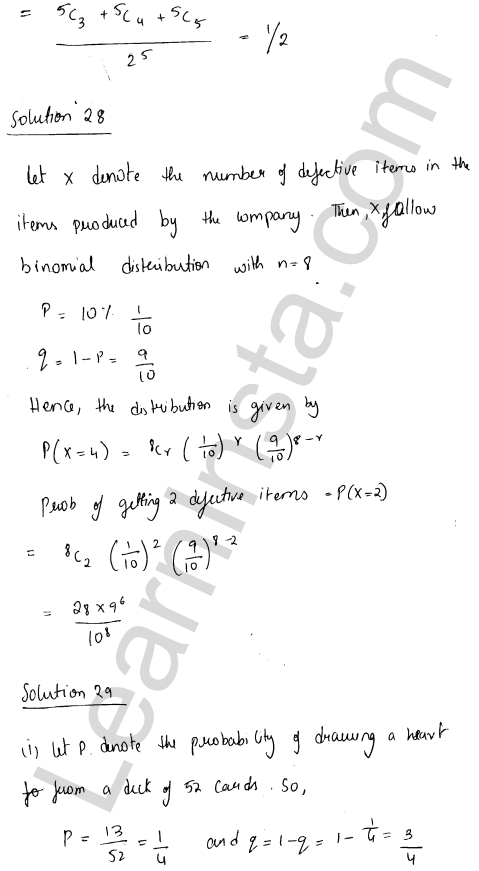 = (⁵C₃ + ⁵C₄ + ⁵C₅) / 2⁵ = 1/2
Solution 28
Let x denote the number of defective items in the
items produced by the company. Then, x follow
binomial distribution with n=8
P = 10% 1/10
q = 1-P = 9/10
Hence, the distribution is given by
P(x=4) = ⁸Cᵣ (1/10)^r (9/10)^(8-r)
Prob of getting 2 defective items = P(X=2)
= ⁸C₂ (1/10)² (9/10)^(8-2)
= (28 × 9⁶) / 10⁸
Solution 29
(i) Let P. denote the probability of drawing a heart
from a deck of 52 cards. So,
P = 13/52 = 1/4 and q = 1-q = 1 - 1/4 = 3/4
LearnInsta.com